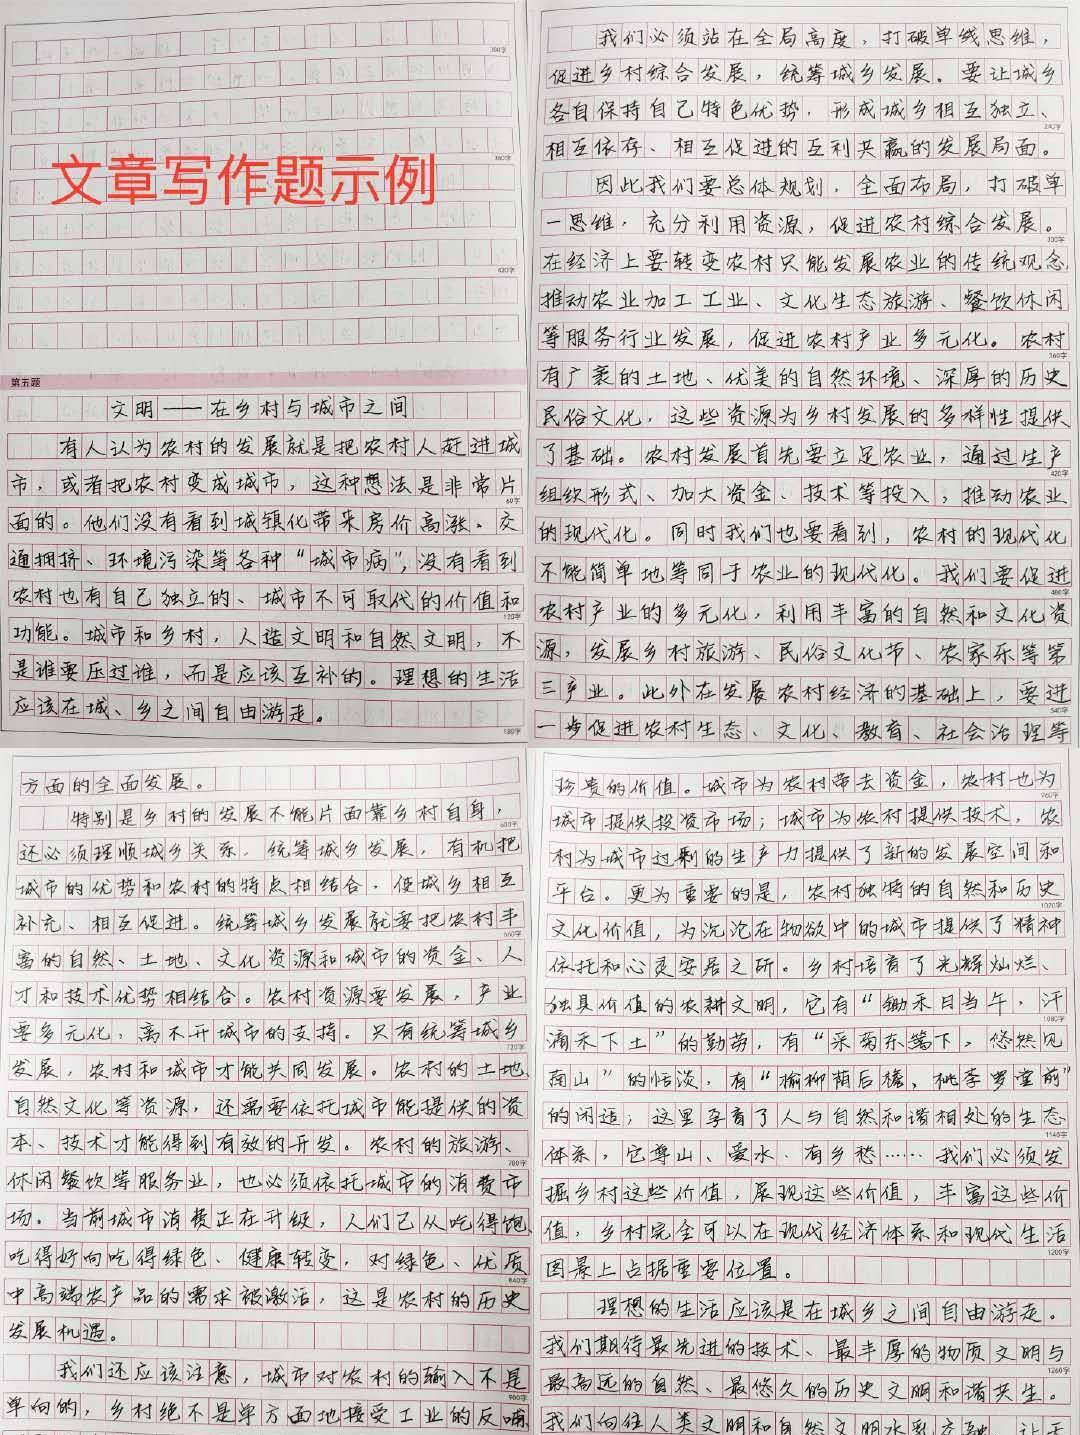 300字
文章写作题示例
360字
420字
第五题
文明——在乡村与城市之间
有人认为农村的发展就是把农村人赶进城
市，或者把农村变成城市，这种想法是非常片
60字
面的。他们没有看到城镇化带来房价高涨、交
通拥挤、环境污染等各种“城市病”，没有看到
农村也有自己独立的、城市不可取代的价值和
120字
功能。城市和乡村，人造文明和自然文明，不
是谁要压过谁，而是应该互补的。理想的生活
应该在城、乡之间自由游走。
180字
我们必须站在全局高度，打破单线思维，
促进乡村综合发展，统筹城乡发展。要让城乡
各自保持自己特色优势，形成城乡相互独立、
240字
相互依存、相互促进的互利共赢的发展局面。
因此我们要总体规划，全面布局，打破单
一思维，充分利用资源，促进农村综合发展。
300字
在经济上要转变农村只能发展农业的传统观念
推动农业加工工业、文化生态旅游、餐饮休闲
等服务行业发展，促进农村产业多元化。农村
360字
有广袤的土地、优美的自然环境、深厚的历史
民俗文化，这些资源为乡村发展的多样性提供
了基础。农村发展首先要立足农业，通过生产
420字
组织形式、加大资金、技术等投入，推动农业
的现代化。同时我们也要看到，农村的现代化
不能简单地等同于农业的现代化。我们要促进
480字
农村产业的多元化，利用丰富的自然和文化资
源，发展乡村旅游、民俗文化节、农家乐等第
三产业。此外在发展农村经济的基础上，要进
540字
一步促进农村生态、文化、教育、社会治理等
方面的全面发展。
特别是乡村的发展不能片面靠乡村自身，
600字
还必须理顺城乡关系，统筹城乡发展，有机把
城市的优势和农村的特点相结合，使城乡相互
补充、相互促进。统筹城乡发展就要把农村丰
660字
富的自然、土地、文化资源和城市的资金、人
才和技术优势相结合。农村资源要发展，产业
要多元化，离不开城市的支持。只有统筹城乡
720字
发展，农村和城市才能共同发展。农村的土地、
自然文化等资源，还需要依托城市能提供的资
本、技术才能得到有效的开发。农村的旅游、
780字
休闲餐饮等服务业，也必须依托城市的消费市
场。当前城市消费正在升级，人们已从吃得饱、
吃得好向吃得绿色、健康转变，对绿色、优质
840字
中高端农产品的需求被激活，这是农村的历史
发展机遇。
我们还应该注意，城市对农村的输入不是
900字
单向的，乡村绝不是单方面地接受工业的反哺
珍贵的价值。城市为农村带去资金，农村也为
960字
城市提供投资市场；城市为农村提供技术，农
村为城市过剩的生产力提供了新的发展空间和
平台。更为重要的是，农村独特的自然和历史
1020字
文化价值，为沉沦在物欲中的城市提供了精神
依托和心灵安居之所。乡村培育了光辉灿烂、
独具价值的农耕文明，它有“锄禾日当午，汗
1080字
滴禾下土”的勤劳，有“采菊东篱下，悠然见
南山”的恬淡，有“榆柳荫后檐，桃李罗堂前”
的闲适；这里孕育了人与自然和谐相处的生态
1140字
体系，它尊山、爱水、有乡愁……我们必须发
掘乡村这些价值，展现这些价值，丰富这些价
值，乡村完全可以在现代经济体系和现代生活
1200字
图景上占据重要位置。
理想的生活应该是在城乡之间自由游走。
我们期待最先进的技术、最丰厚的物质文明与
1260字
最高远的自然、最悠久的历史文明和谐共生。
我们向往人类文明和自然文明水乳交融，让天